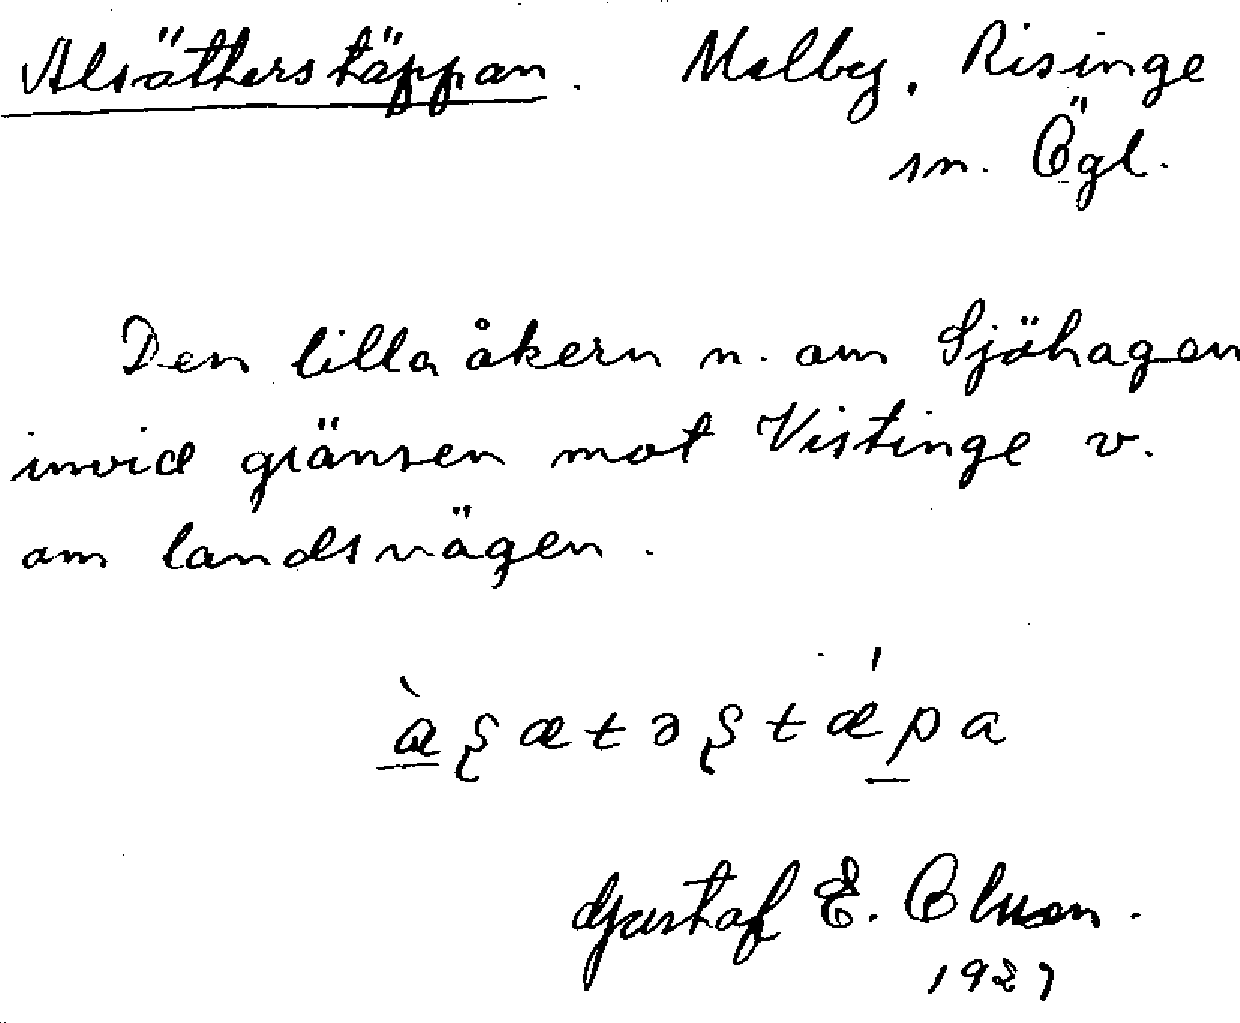 Alsätterstäppan. Melby, Risinge
sn. Ögl.
Den lilla åkern n. om Sjöhagen
invid gränsen mot Vistinge v.
om landsvägen.
Gustaf E. Olsson.
1927